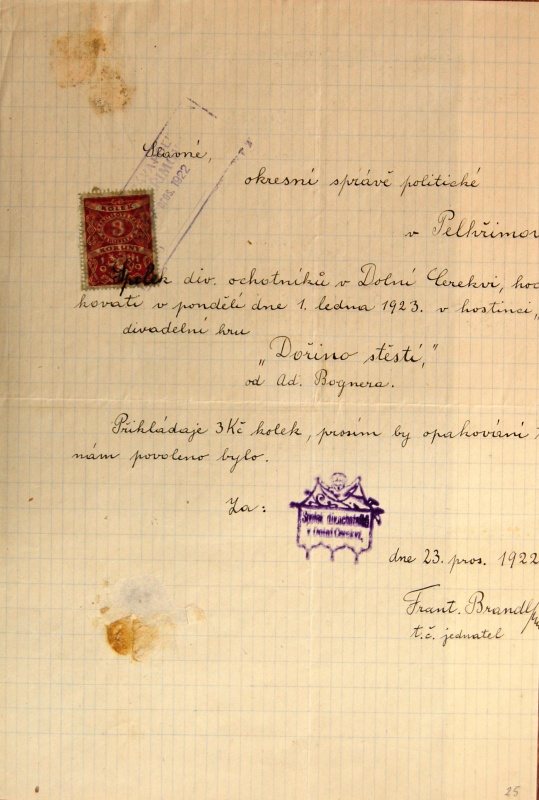 Slavné,
okresní správě politické
v Pelhřimov
1922
KOLEK
3
KORUNY
1919
Spolek div. ochotníků v Dolní Cerekvi, hod
kovati v pondělí dne 1. ledna 1923. v hostinci „
divadelní hru
„Dořino stěstí,"
od Ad. Bognera.
Přikládaje 3Kč kolek, prosím by opakování
nám povoleno bylo.
Za:
Spolek div. ochotníků
v Dolní Cerekvi,
dne 23. pros. 1922
Frant. Brandl
t.č. jednatel
25